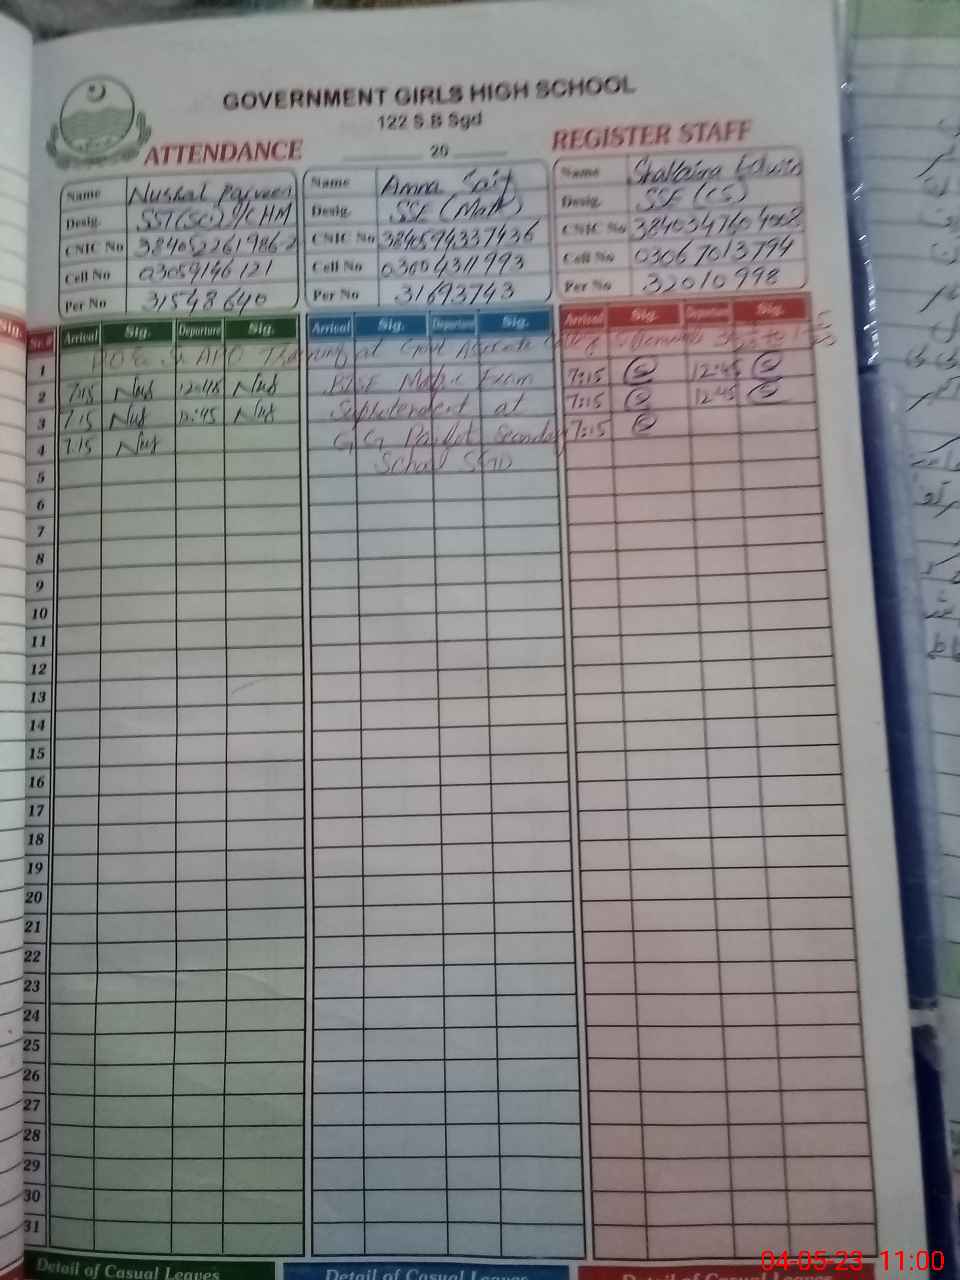 GOVERNMENT GIRLS HIGH SCHOOL
122 S.B Sgd
ATTENDANCE 20 REGISTER STAFF
Name Nushat Parveen
Desig. SST (Sci) I/C HM
CNIC No
Cell No 03059146121
Per No 31548640
Name Amna
Desig. SSE (Math)
CNIC No 384594337436
Cell No 03004311993
Per No 31693743
Name Edwin
Desig. SSE (CS)
CNIC No 3840347604008
Cell No 03067013794
Per No 32010998
Sr.# Arrival Sig. Departure Sig. Arrival Sig. Departure Sig. Arrival Sig. Departure Sig.
1 Training at Govt
2 7:15 Nus Nus BISE Matric Exam 7:15 12:45
3 7:15 Nus 12:45 Nus at 7:15 12:45
4 7:15 Nus G.G Secondary 7:15
5 School SGD
6
7
8
9
10
11
12
13
14
15
16
17
18
19
20
21
22
23
24
25
26
27
28
29
30
31
Detail of Casual Leaves Detail of Casual Leaves Detail of Casual Leaves
04-05-23 11:00